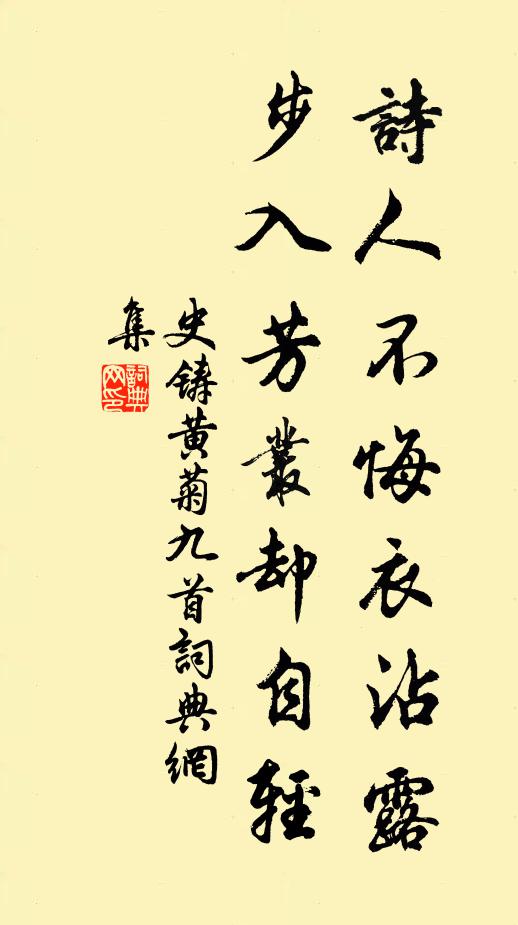 詩人不悔衣沾露
步入芳叢却自輕
史鑄黃菊九首詞典網
集
詞典
网印